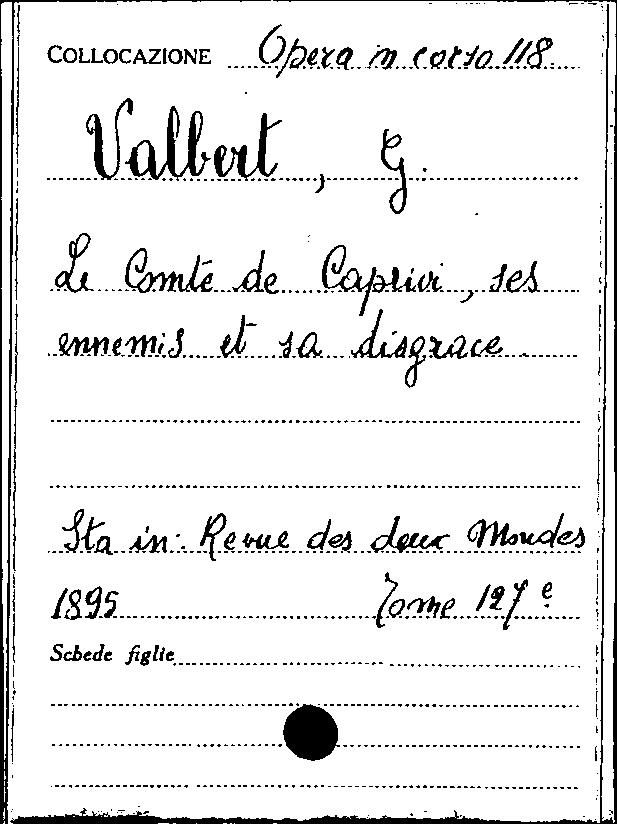 COLLOCAZIONE Opera in corso 118
Valbert, G.
Le Comte de Caprivi, ses
ennemis et sa disgrace.
Sta in: Revue des deux Mondes
1895 Tome 127e
Schede figlie